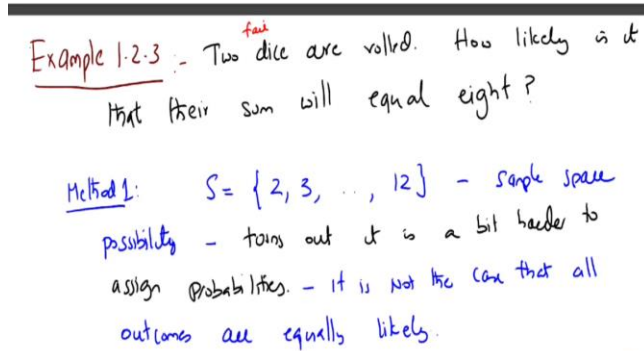 fair
Example 1.2.3 :- Two dice are rolled. How likely is it
that their sum will equal eight?
Method 1: S = { 2, 3, .., 12} - sample space
possibility - turns out it is a bit harder to
assign probabilities. - It is not the case that all
outcomes are equally likely.